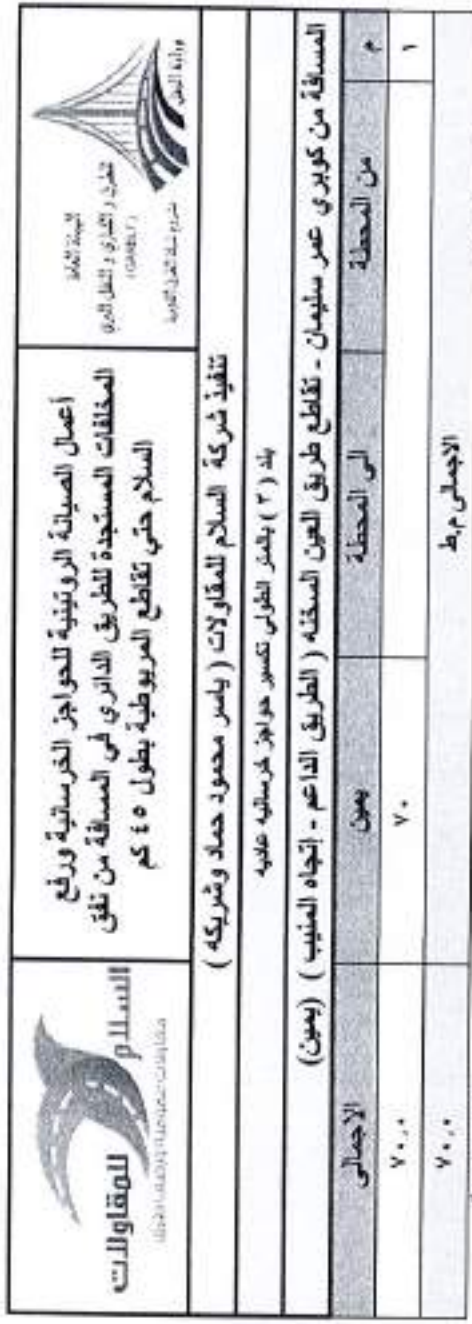 وزارة النقل
الهيئة العامة
للطرق و الكباري و النقل البري
(GARBLT)
أعمال الصيانة الروتينية للحواجز الخرسانية ورفع
المخلفات المستجدة للطريق الدائري في المسافة من نفق
السلام حتي تقاطع المريوطية بطول ٤٥ كم
السلام
للمقاولات
تنفيذ شركة السلام للمقاولات ( ياسر محمود حماد وشريكه )
بند ( ٣ ) بالمتر الطولى تكسير حواجز خرسانيه عاديه
المسافة من كوبري عمر سليمان - تقاطع طريق العين السخنه ( الطريق الداعم - إتجاه المنيب ) (يمين)
م من المحطة الى المحطة يمين الاجمالى
١ ٧٠ ٧٠,٠
الاجمالى م.ط ٧٠,٠